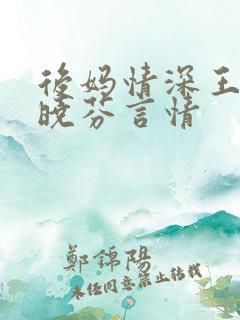 後妈情深王
晓芬言情
鄭錦陽
未经同意禁止转载